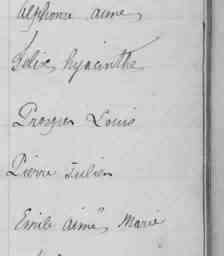 alphonse aimé
Félix hyacinthe
Prosper Louis
Pierre Julien
Emile aimé Marie